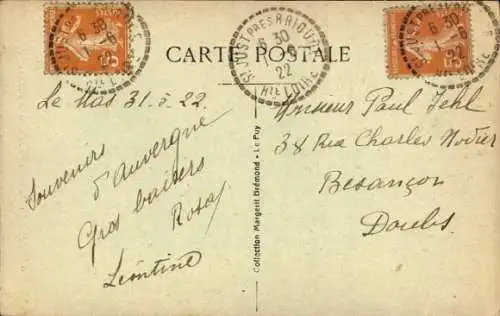 ST JUST PRES BRIOUDE
6 30
1 -6
22
HTE LOIRE
CARTE POSTALE
Le Mas 31.5.22
Souvenirs
d'Auvergne
Gros baisers
Rosa
Léontine
Collection Margerit Brémond - Le Puy
Monsieur Paul Jehl
38 Rue Charles Nodier
Besançon
Doubs